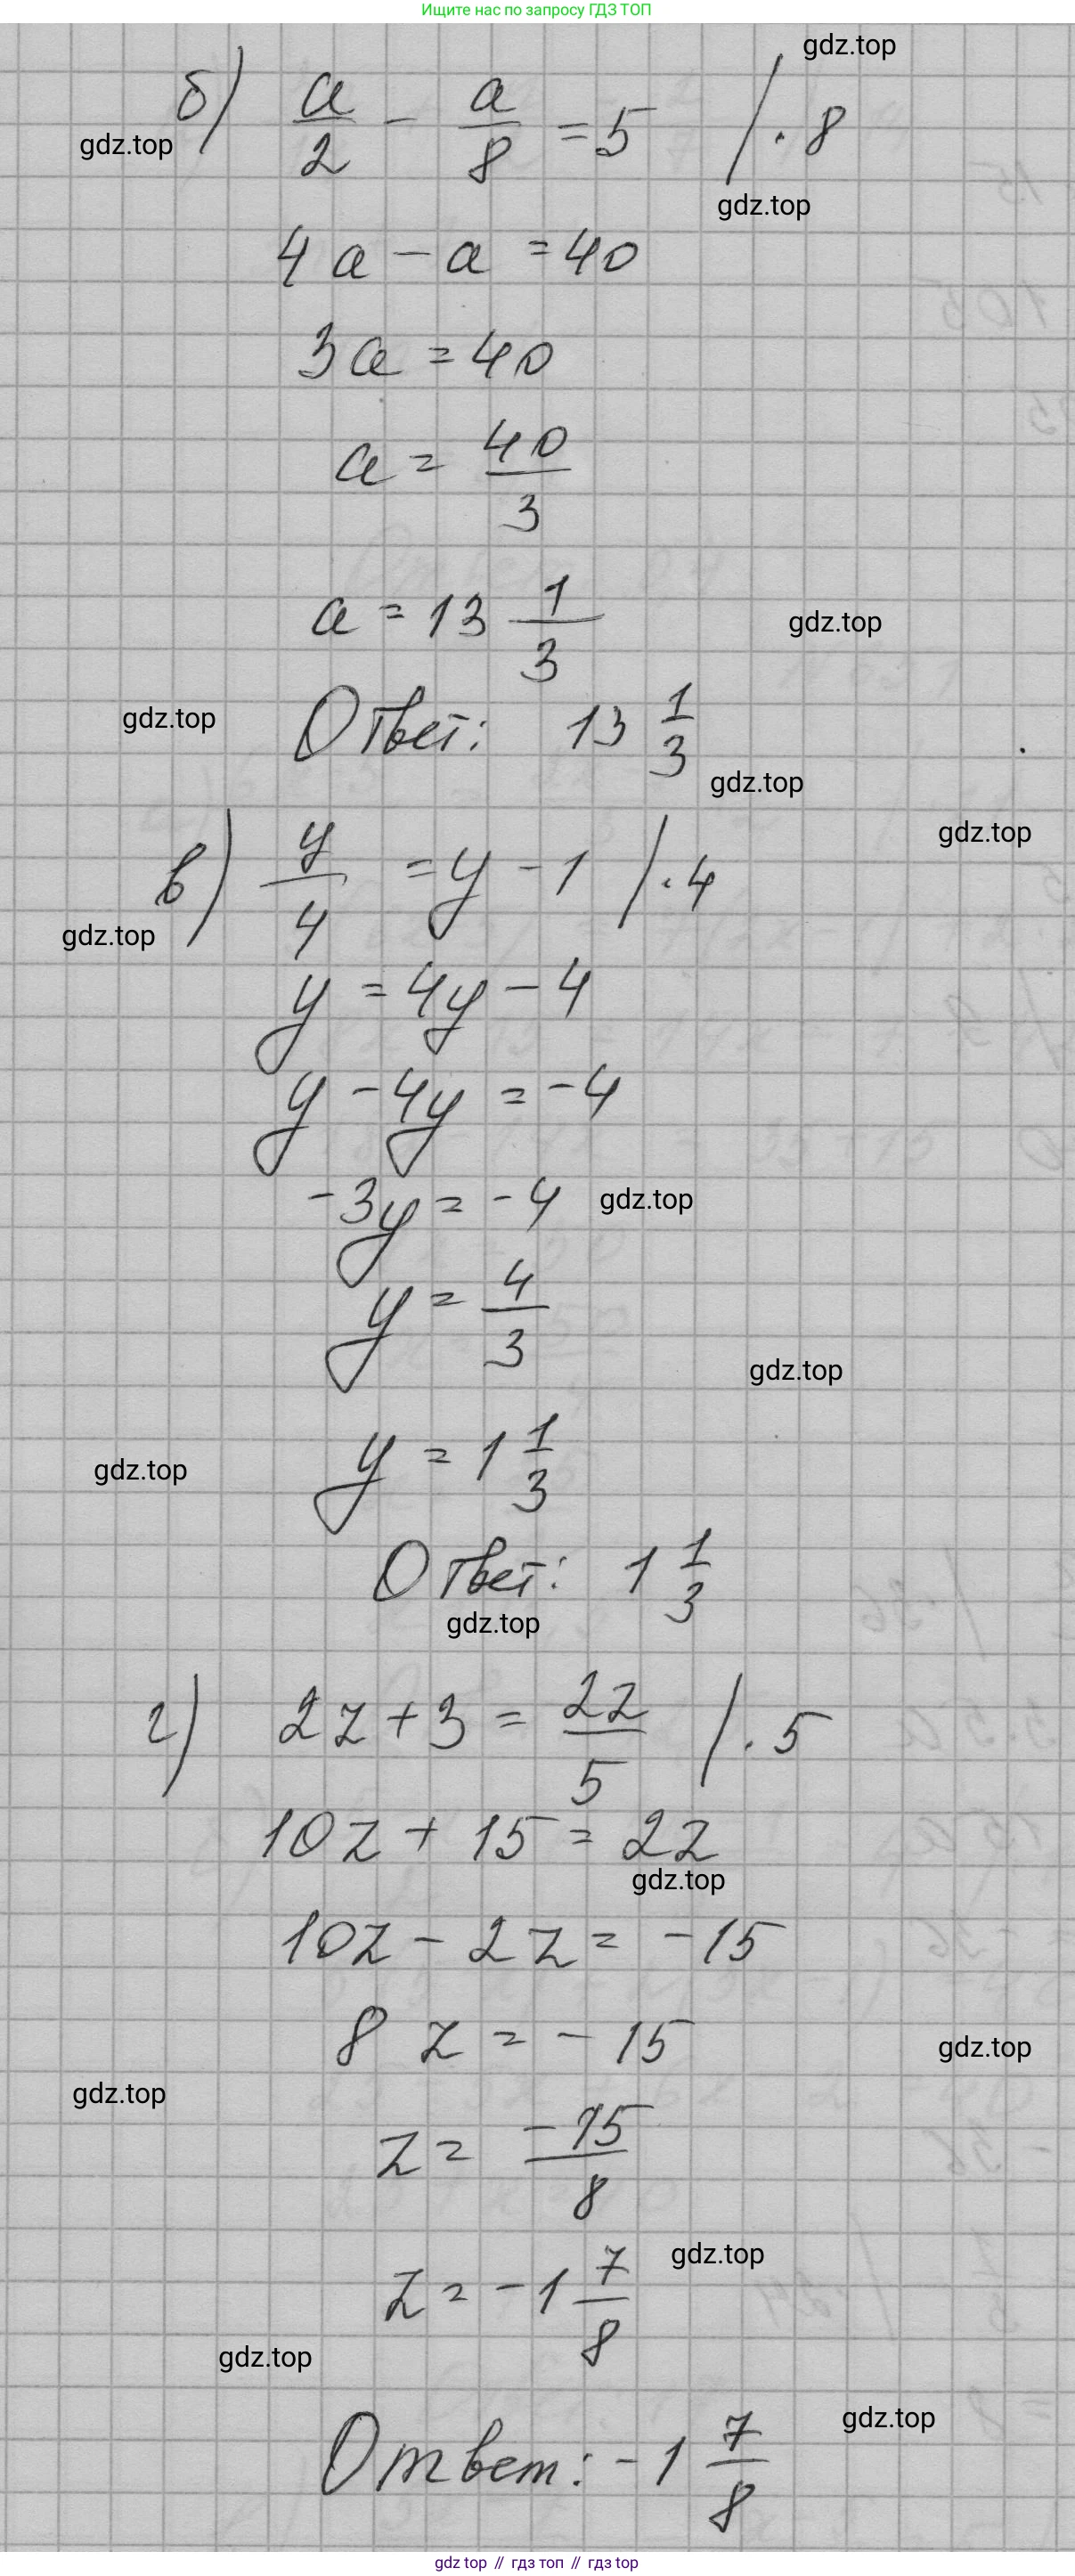 Ищите нас по запросу ГДЗ ТОП
gdz.top
б) a/2 - a/8 = 5 / · 8
gdz.top
gdz.top
4a - a = 40
3a = 40
a = 40/3
a = 13 1/3
gdz.top
gdz.top
Ответ: 13 1/3
gdz.top
gdz.top
в) y/4 = y - 1 / · 4
gdz.top
y = 4y - 4
y - 4y = -4
-3y = -4
gdz.top
y = 4/3
gdz.top
y = 1 1/3
gdz.top
Ответ: 1 1/3
gdz.top
г) 2z + 3 = 2z/5 / · 5
10z + 15 = 2z
gdz.top
10z - 2z = -15
8 z = - 15
gdz.top
gdz.top
z = -15/8
z = -1 7/8
gdz.top
gdz.top
gdz.top
Ответ: -1 7/8
gdz top // гдз топ // гдз top